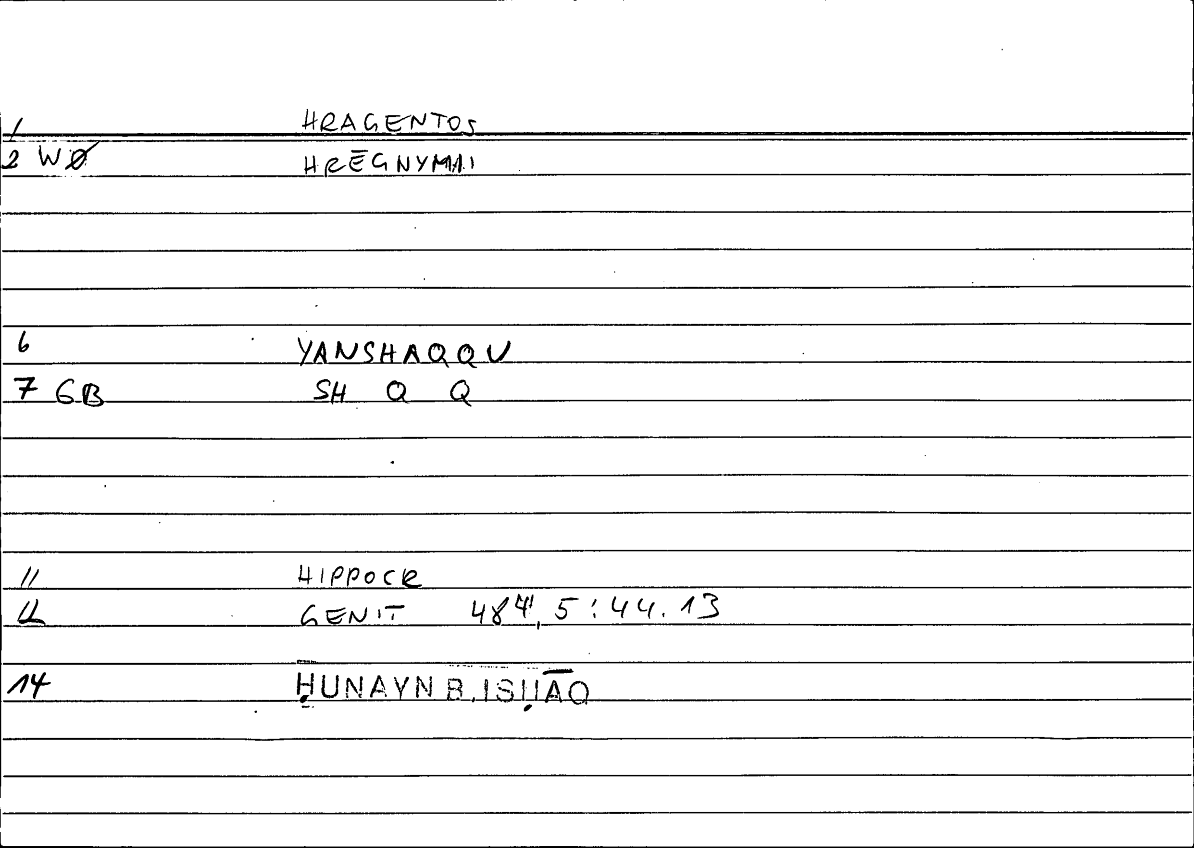 1 HRAGENTOS
2 WØ HRĒGNYMAI
6 YANSHAQQU
7 GB SH Q Q
11 HIPPOCR
12 GENIT 484, 5 : 44.13
14 ḤUNAYN B. ISḤĀQ